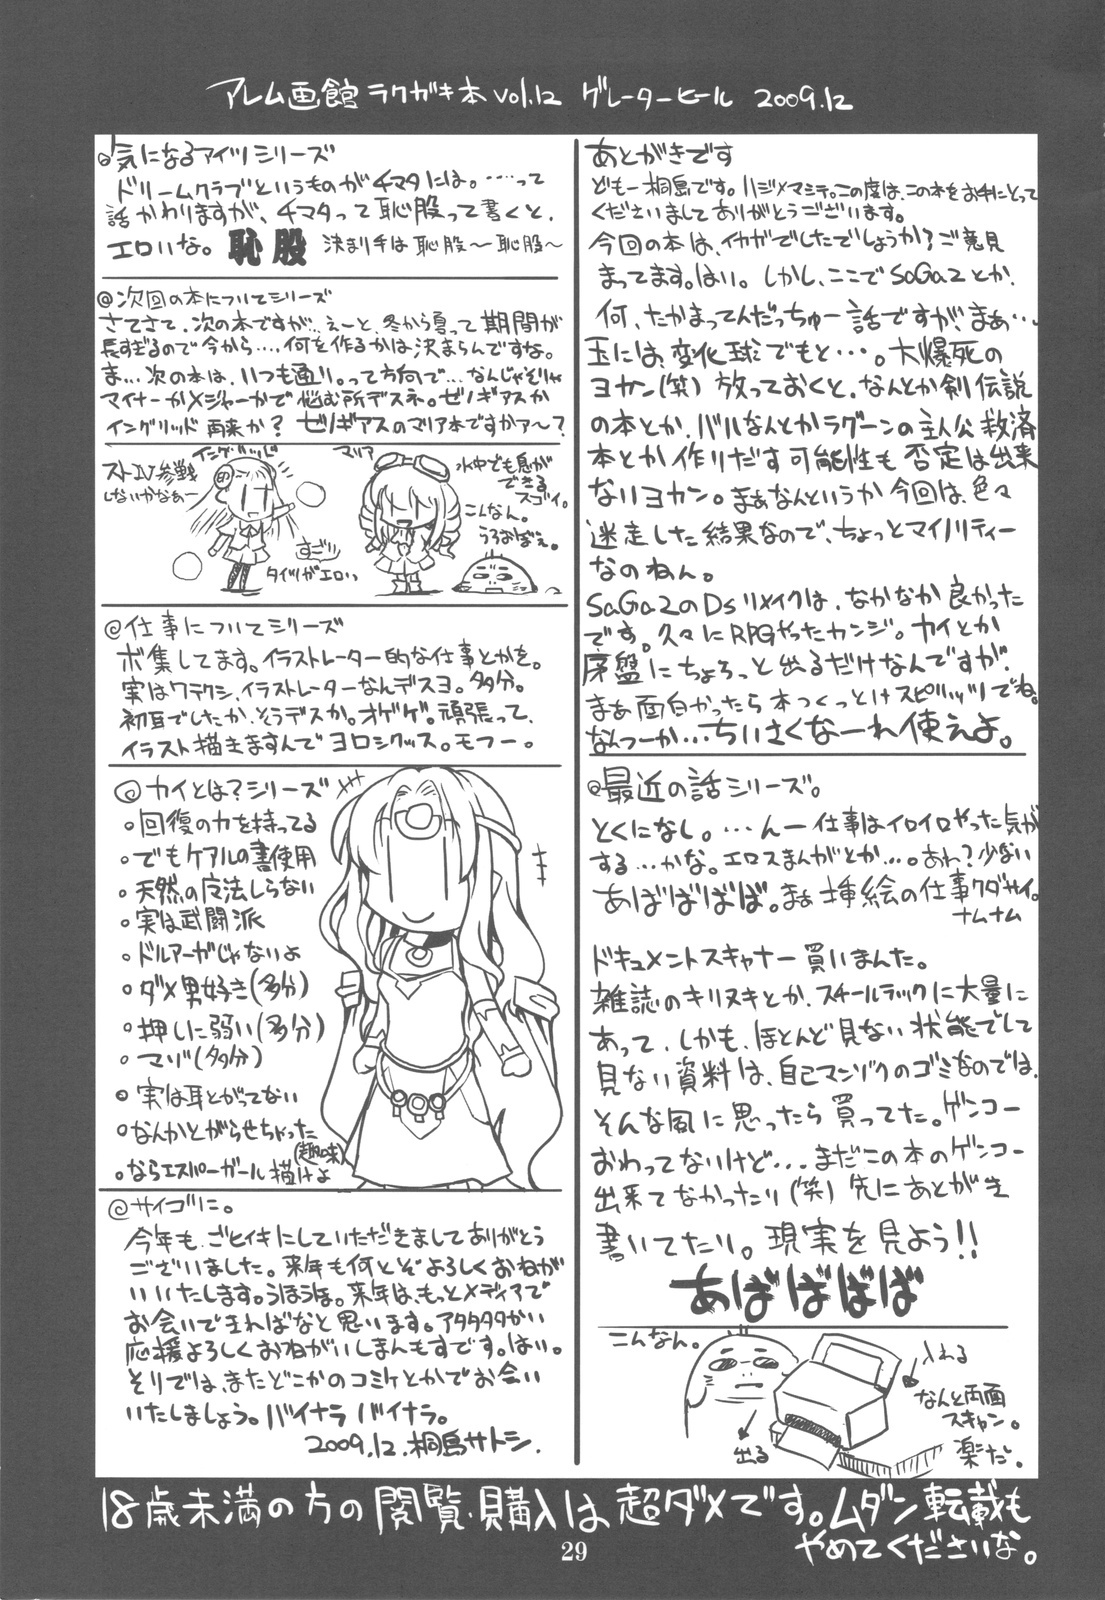 アレム画館 ラクガキ本 vol.12 グレーターヒール 2009.12
あとがきです
どもー桐島です。ハジメマシテ。この度は、この本をお手にとって
くださいましてありがとうございます。
今回の本は、イカガでしたでしょうか?ご意見
まってます。はい。しかし、ここでSaGa2とか、
何、たかまってんだっちゅー話ですが、まぁ…
玉には、変化球でもと…。大爆死の
ヨカン(笑) 放っておくと、なんとか剣伝説
の本とか、バルなんとかラグーンの主人公救済
本とか作りだす可能性も否定は出来
ないヨカン。まぁなんというか今回は、色々
迷走した結果なので、ちょっとマイノリティー
なのねん。
SaGa2のDSリメイクは、なかなか良かった
です。久々にRPGやったカンジ。カイとか
序盤にちょろっと出るだけなんですが、
まぁ面白かったら本つくっとけスピリッツでね。
なんつーか…ちいさくなーれ使えよ。
@最近の話シリーズ。
とくになし。…んー仕事はイロイロやった気が
する…かな。エロスまんがとか…。あわ?少ない
あばばばば。まぁ挿絵の仕事クダサイ。
ナムナム
ドキュメントスキャナー買いまんた。
雑誌のキリヌキとか、スチールラックに大量に
あって、しかも、ほとんど見ない状態でして
見ない資料は、自己マンゾクのゴミなのでは、
そんな風に思ったら買ってた。ゲンコー
おわってないけど…まだこの本のゲンコー
出来てなかったり(笑) 先にあとがき
書いてたり。現実を見よう!!
あばばばば
こんなん。
入れる
なんと両面
スキャン。
楽だ。
出る
@気になるアイツシリーズ
ドリームクラブというものがチマタには。……って
話かわりますが、チマタって恥股って書くと、
エロいな。恥股 決まり手は恥股〜恥股〜
@次回の本についてシリーズ
さてさて、次の本ですが…えーと、冬から夏って期間が
長すぎるので今から…何を作るかは決まらんですな。
ま…次の本は、いつも通り。って方向で…なんじゃそりゃ
マイナーかメジャーかで悩む所デスネ。ゼノギアスか
イングリッド再来か? ゼノギアスのマリア本ですかァ〜?
ストIV参戦
しないかなぁー
イングリッド
すごい
タイツがエロいっ
マリア
水中でも息が
できる
スゴイ。
こんなん。
うろおぼえ。
@仕事についてシリーズ
ボ集してます。イラストレーター的な仕事とかを。
実はワテクシ、イラストレーターなんデスヨ。多分。
初耳でしたか、そうデスか。オゲゲ。頑張って、
イラスト描きますんでヨロシクッス。モフー。
@カイとは?シリーズ
。回復の力を持ってる
。でもケアルの書使用
。天然の魔法しらない
。実は武闘派
。ドルアーガじゃないよ
。ダメ男好き(多分)
。押しに弱い(多分)
。マゾ(多分)
。実は耳とがってない
。なんかとがらせちゃった
(趣味)
。ならエスパーガール描けよ
@サイゴに。
今年も、ごヒイキにしていただきましてありがとう
ございました。来年も何とぞよろしくおねがい
いたします。うほうほ。来年は、もっとメディアで
お会いできればなと思います。アタタタタかい
応援よろしくおねがいしまんもすです。はい。
そりでは、またどこかのコミケとかでお会い
いたしましょう。バイナラ バイナラ。
2009.12.桐島サトシ.
18歳未満の方の閲覧・購入は超ダメです。ムダン転載も
やめてくださいな。
29